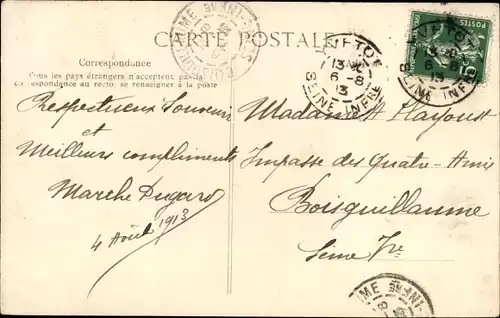 CARTE POSTALE
Correspondance
Tous les pays étrangers n'acceptent pas la
correspondance au recto, se renseigner à la poste
Respectueux Souvenir
et
Meilleurs compliments
4 Août 1913
Madame
Impasse des Quatre-Amis
Boisguillaume
Seine Fre
YVETOT
13
6-8
13
SEINE INFRE